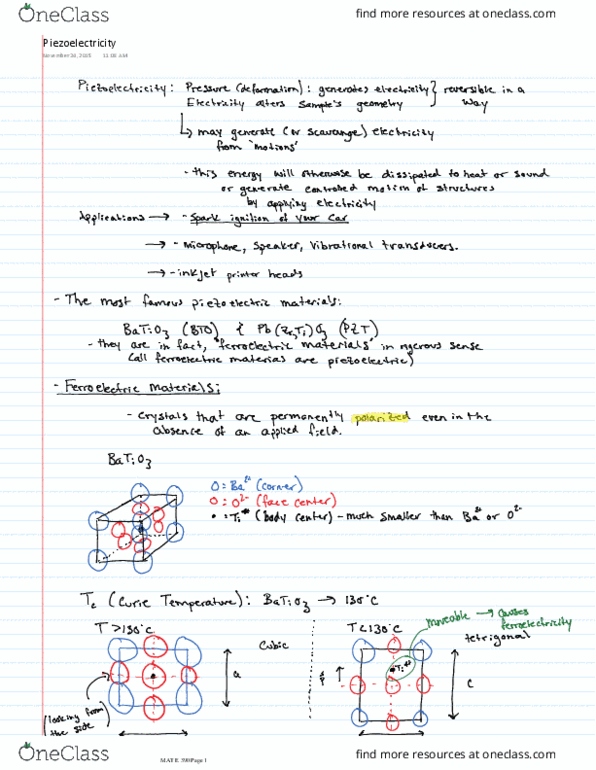 OneClass
find more resources at oneclass.com
Piezoelectricity
November 24, 2015 11:00 AM
Piezoelectricity: Pressure (deformation): generates electricity } reversible in a
Electricity alters Sample's geometry way
↳ may generate (or scavange) electricity
from 'motions'
- this energy will otherwise be dissipated to heat or sound
or generate controlled motion of structures
by applying electricity
Applications → - Spark ignition of your Car
→ - microphone, speaker, vibrational transducers.
→ - inkjet printer heads
- The most famous piezoelectric materials:
BaTiO3 (BTO) & Pb(Zr,Ti)O3 (PZT)
- they are in fact, "ferroelectric materials" in rigerous sense
(all ferroelectric materias are piezoelectric)
- Ferroelectric Materials:
- Crystals that are permanently polarized even in the
absence of an applied field.
BaTiO3
O: Ba2+ (corner)
O: O2- (face center)
• : Ti4+ (body center) - much smaller than Ba2+ or O2-
Tc (Curie Temperature): BaTiO3 → 130°C
moveable → causes
ferroelectricity
T>130°C
T<130°C
tetrigonal
Cubic
Ti4+
a
c
(looking from
the side)
OneClass
MATE 390 Page 1
find more resources at oneclass.com